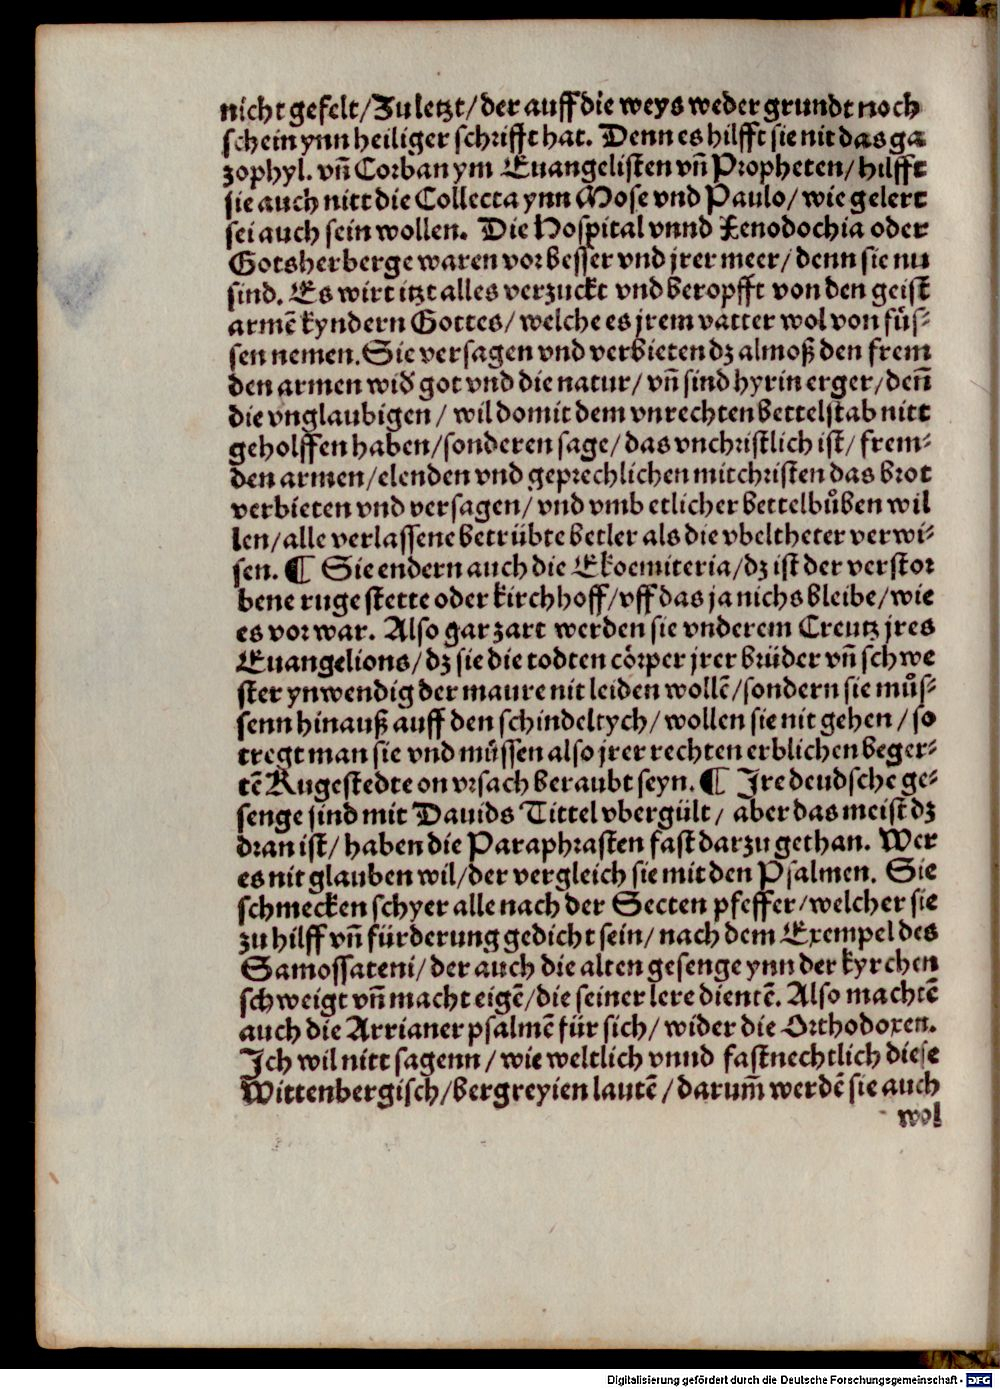 nicht gefelt/Zu letzt/der auff die weys weder grundt noch
schein ynn heiliger schrifft hat. Denn es hilfft sie nit das ga
zophyl. vñ Corban ym Euangelisten vñ Propheten/hilfft
sie auch nitt die Collecta ynn Mose vnd Paulo/wie gelert
sei auch sein wollen. Die Hospital vnnd Xenodochia oder
Gotsherberge waren vor besser vnd jrer meer/denn sie nu
sind. Es wirt itzt alles verzuckt vnd beropfft von den geist
armē kyndern Gottes/welche es jrem vatter wol von füs-
sen nemen. Sie versagen vnd verbieten dz almoß den frem
den armen wid got vnd die natur/vñ sind hyrin erger/deñ
die vnglaubigen/wil domit dem vnrechten bettelstab nitt
geholffen haben/sonderen sage/das vnchristlich ist/frem-
den armen/elenden vnd geprechlichen mitchristen das brot
verbieten vnd versagen/vnd vmb etlicher bettelbůben wil
len/alle verlassene betrübte betler als die vbeltheter verwi-
sen. ¶ Sie endern auch die Ekoemiteria/dz ist der verstor
bene ruge stette oder kirchhoff/vff das ja nichs bleibe/wie
es vor war. Also gar zart werden sie vnderem Creutz jres
Euangelions/dz sie die todten cörper jrer brüder vñ schwe
ster ynwendig der maure nit leiden wollē/sondern sie můs-
senn hinauß auff den schindeltych/wollen sie nit gehen/so
tregt man sie vnd müssen also jrer rechten erblichen beger-
tē Rugestedte on vrsach beraubt seyn. ¶ Ire deudsche ge-
senge sind mit Dauids Tittel vbergült/aber das meist dz
dran ist/haben die Paraphrasten fast darzu gethan. Wer
es nit glauben wil/der vergleich sie mit den Psalmen. Sie
schmecken schyer alle nach der Secten pfeffer/welcher sie
zu hilff vñ fürderung gedicht sein/nach dem Exempel des
Samossateni/der auch die alten gesenge ynn der kyrchen
schweigt vñ macht eigē/die seiner lere dientē. Also machtē
auch die Arrianer psalmē für sich/wider die Orthodoxen.
Ich wil nitt sagenn/wie weltlich vnnd fastnechtlich diese
Wittenbergisch/bergreyien lautē/darum̄ werdē sie auch
wol
Digitalisierung gefördert durch die Deutsche Forschungsgemeinschaft - DFG